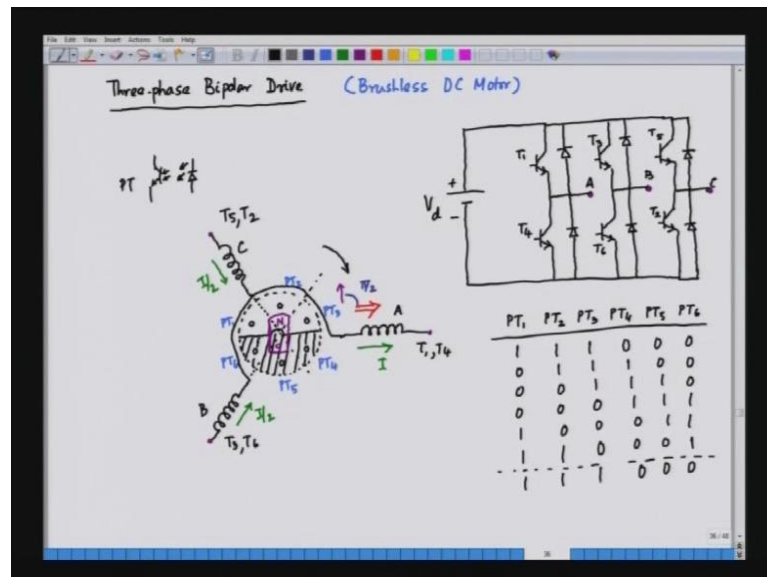 File Edit View Insert Actions Tools Help
Three-phase Bipolar Drive (Brushless DC Motor)
PT
T5, T2
C
I/2
PT2
PT1
PT3
π/2
A
N
I
T1, T4
PT4
PT5
B
I/2
T3, T6
Vd
+
-
T1
T3
T5
A
B
C
T4
T6
T2
PT1 PT2 PT3 PT4 PT5 PT6
1 1 1 0 0 0
0 1 1 1 0 0
0 0 1 1 1 0
0 0 0 1 1 1
1 0 0 0 1 1
1 1 0 0 0 1
1 1 1 0 0 0
36